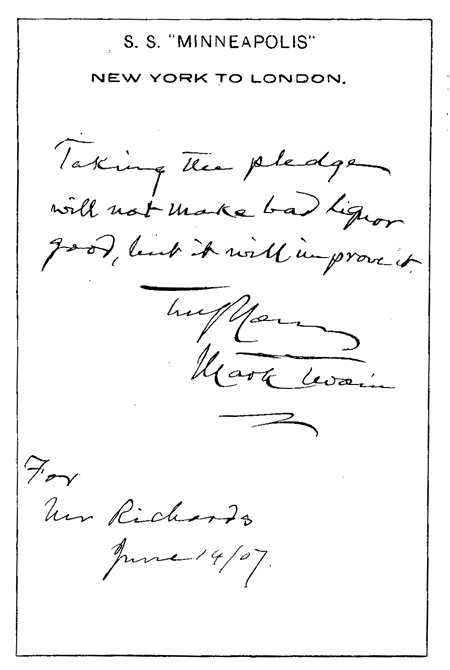 S. S. "MINNEAPOLIS"
NEW YORK TO LONDON.
Taking the pledge
will not make bad liquor
good, but it will improve it.
Truly Yours
Mark Twain
For
Mr Richards
June 14/07.